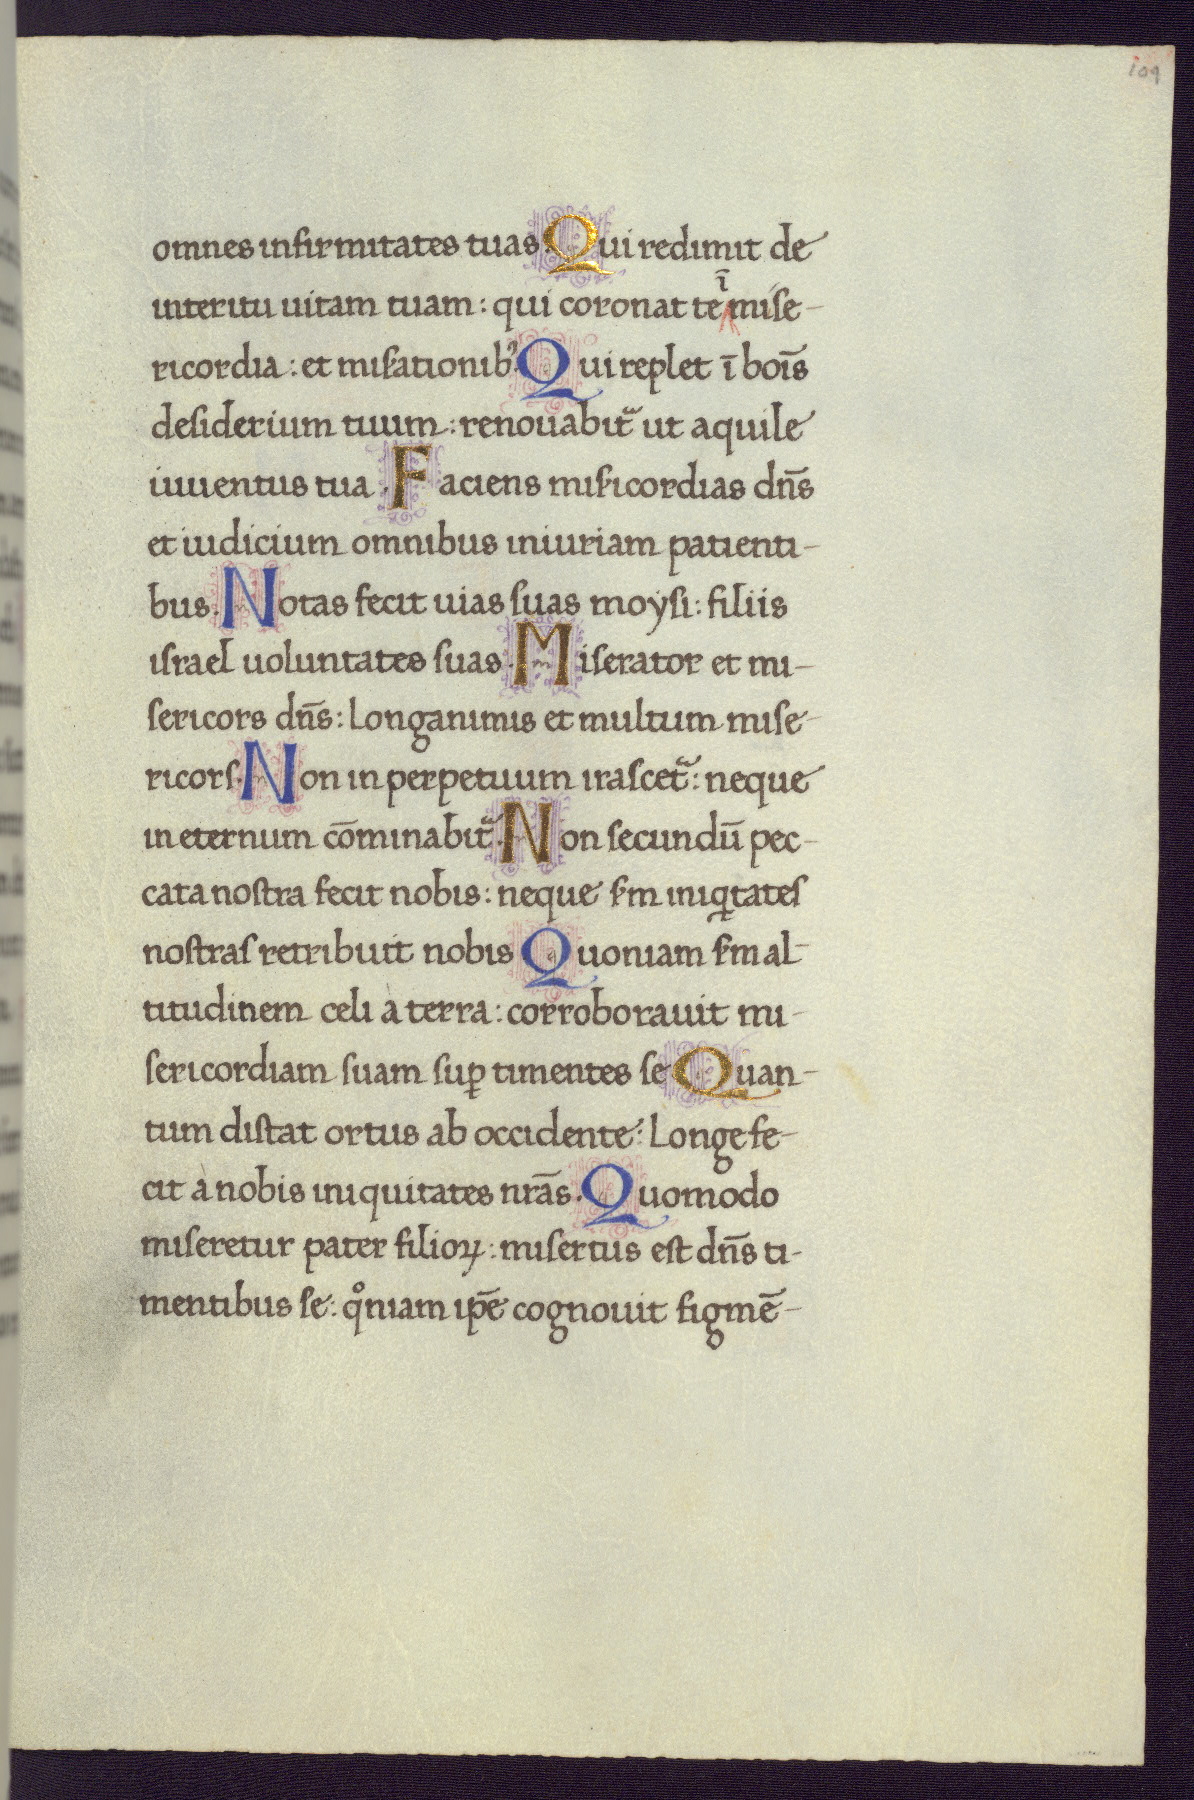 109
omnes infirmitates tuas. Qui redimit de
interitu uitam tuam: qui coronat te ī mise-
ricordia: et misationib9. Qui replet ī boīs
desiderium tuum: renouabit᷑ ut aquile
iuuentus tua. Faciens misicordias dn̄s
et iudicium omnibus iniuriam patienti-
bus. Notas fecit uias suas moysi: filiis
israel uoluntates suas. Miserator et mi-
sericors dn̄s: longanimis et multum mise-
ricors. Non in perpetuum irascet᷑: neque
in eternum cōminabit᷑. Non secundū pec-
cata nostra fecit nobis: neque sm iniqͥtates
nostras retribuit nobis Quoniam sm al-
titudinem celi a terra: corroborauit mi-
sericordiam suam suꝑ timentes se Quan-
tum distat ortus ab occidente: Longe fe-
cit a nobis iniquitates nrās. Quomodo
miseretur pater filioꝝ: misertus est dn̄s ti-
mentibus se: qͦniam ip̄e cognouit figmē-